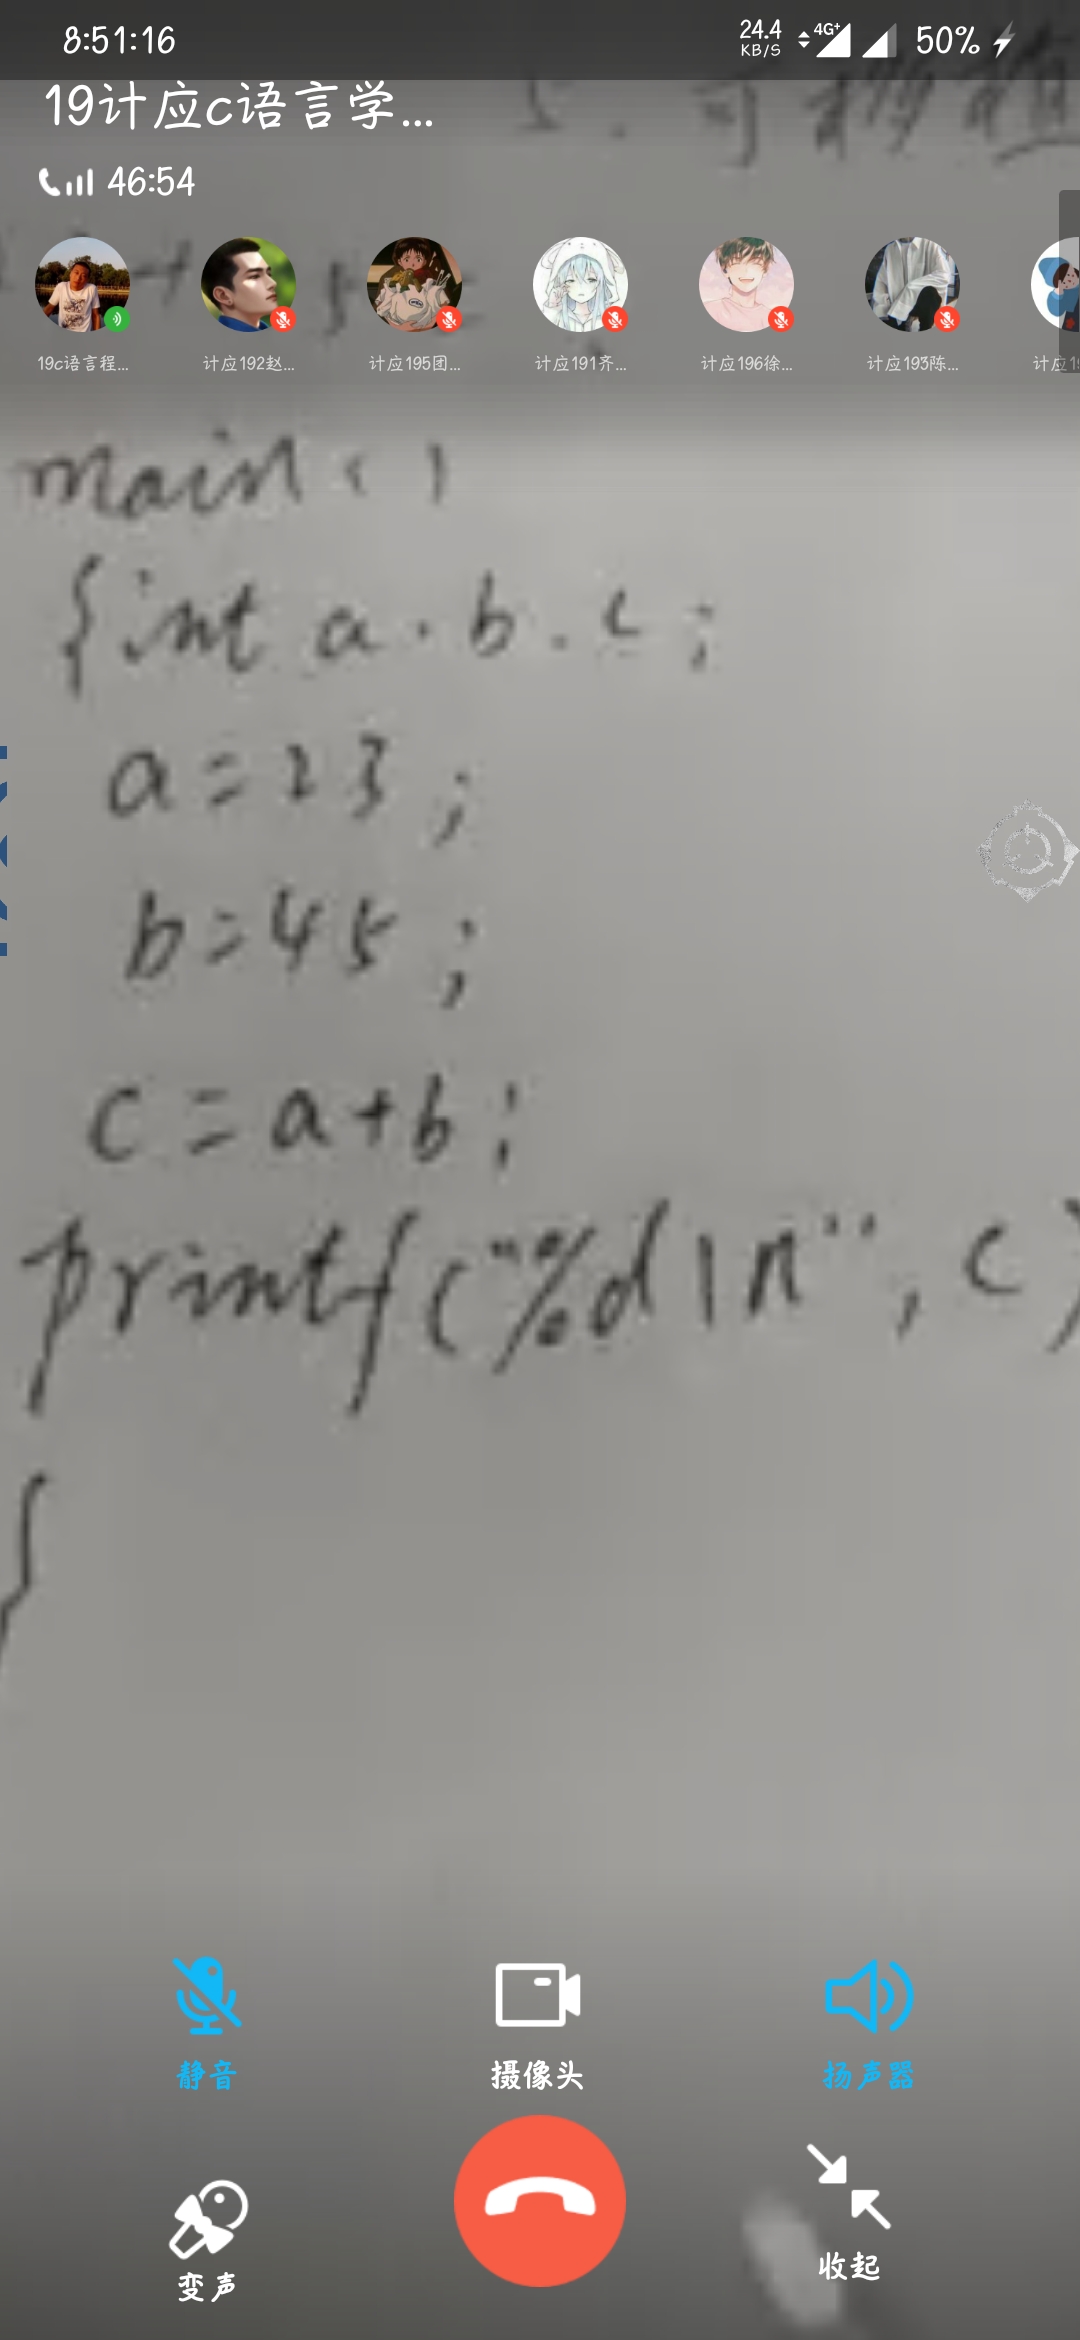 8:51:16
24.4 KB/S 4G+ 50%
19计应c语言学...
46:54
19c语言程... 计应192赵... 计应195团... 计应191齐... 计应196徐... 计应193陈...
main()
{int a.b.c;
a=23;
b=45;
c=a+b;
printf("%d\n",c)
静音 摄像头 扬声器
变声 收起